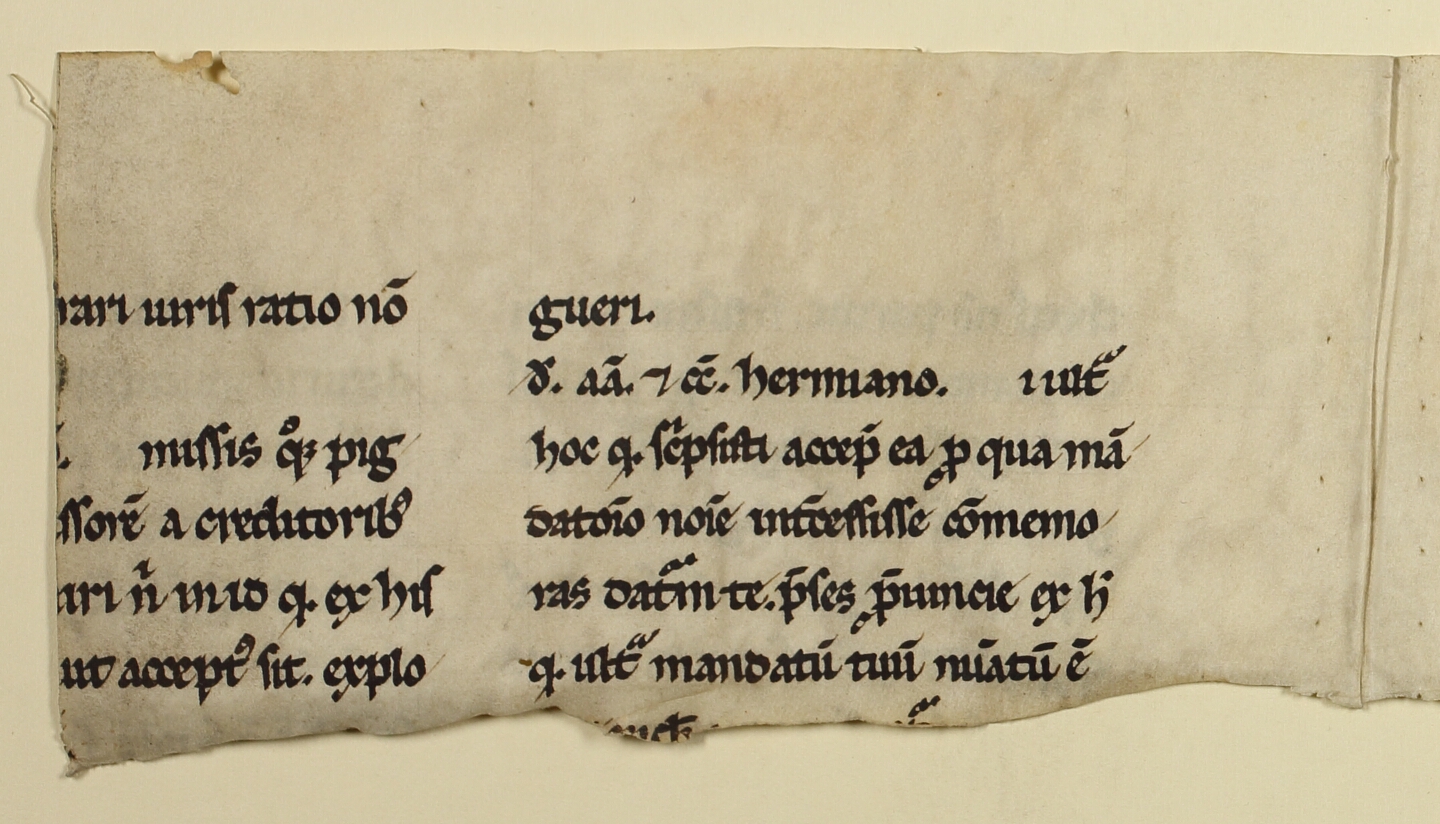 rari iuris ratio nō
missis qͦꝫ pig
ssorē a creditorib᷒
ari n̍ in id q. ex his
ut accept᷒ sit. explo
gueri.
d̄. aā. ⁊ cc̄. hermiano.
hoc q. sc̍psisti accep̄ ea ꝓ qua mā
datoīo noīe int̄cessisse cōmemo
ras datͣm te. p̄ses ꝓuincie ex h̄
q. ult̄ͣ mandatū tuū nūatū ē